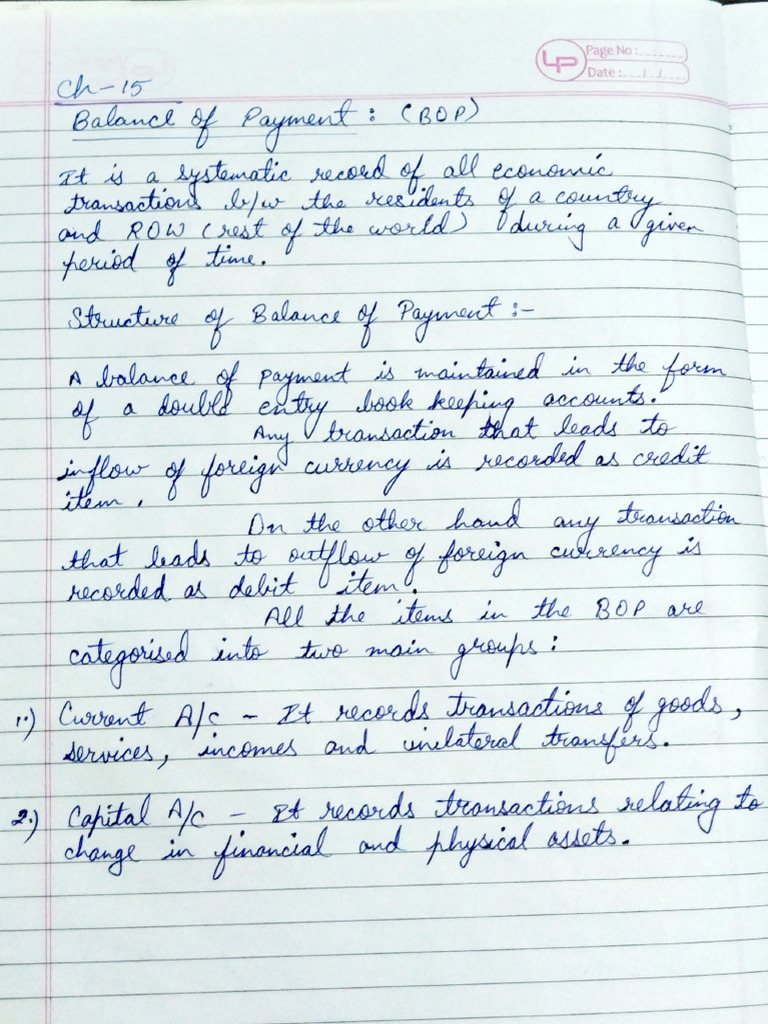 LP
Page No:.......
Date:.../../....
Ch-15
Balance of Payment : (BOP)
It is a systematic record of all economic
transactions b/w the residents of a country
and ROW (rest of the world) during a given
period of time.
Structure of Balance of Payment :-
A balance of payment is maintained in the form
of a double entry book keeping accounts.
Any transaction that leads to
inflow of foreign currency is recorded as credit
item.
On the other hand any transaction
that leads to outflow of foreign currency is
recorded as debit item.
All the items in the BOP are
categorised into two main groups :
1.) Current A/c - It records transactions of goods,
services, incomes and unilateral transfers.
2.) Capital A/c - It records transactions relating to
change in financial and physical assets.